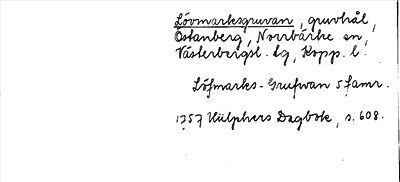 Lövmarksgruvan, gruvhål,
Östanberg, Norrbärke sn,
Västerbergsl. tg, Kopp. l.
Löfmarks-Grufwan 5 famr.
1757 Hülphers Dagbok, s. 608.